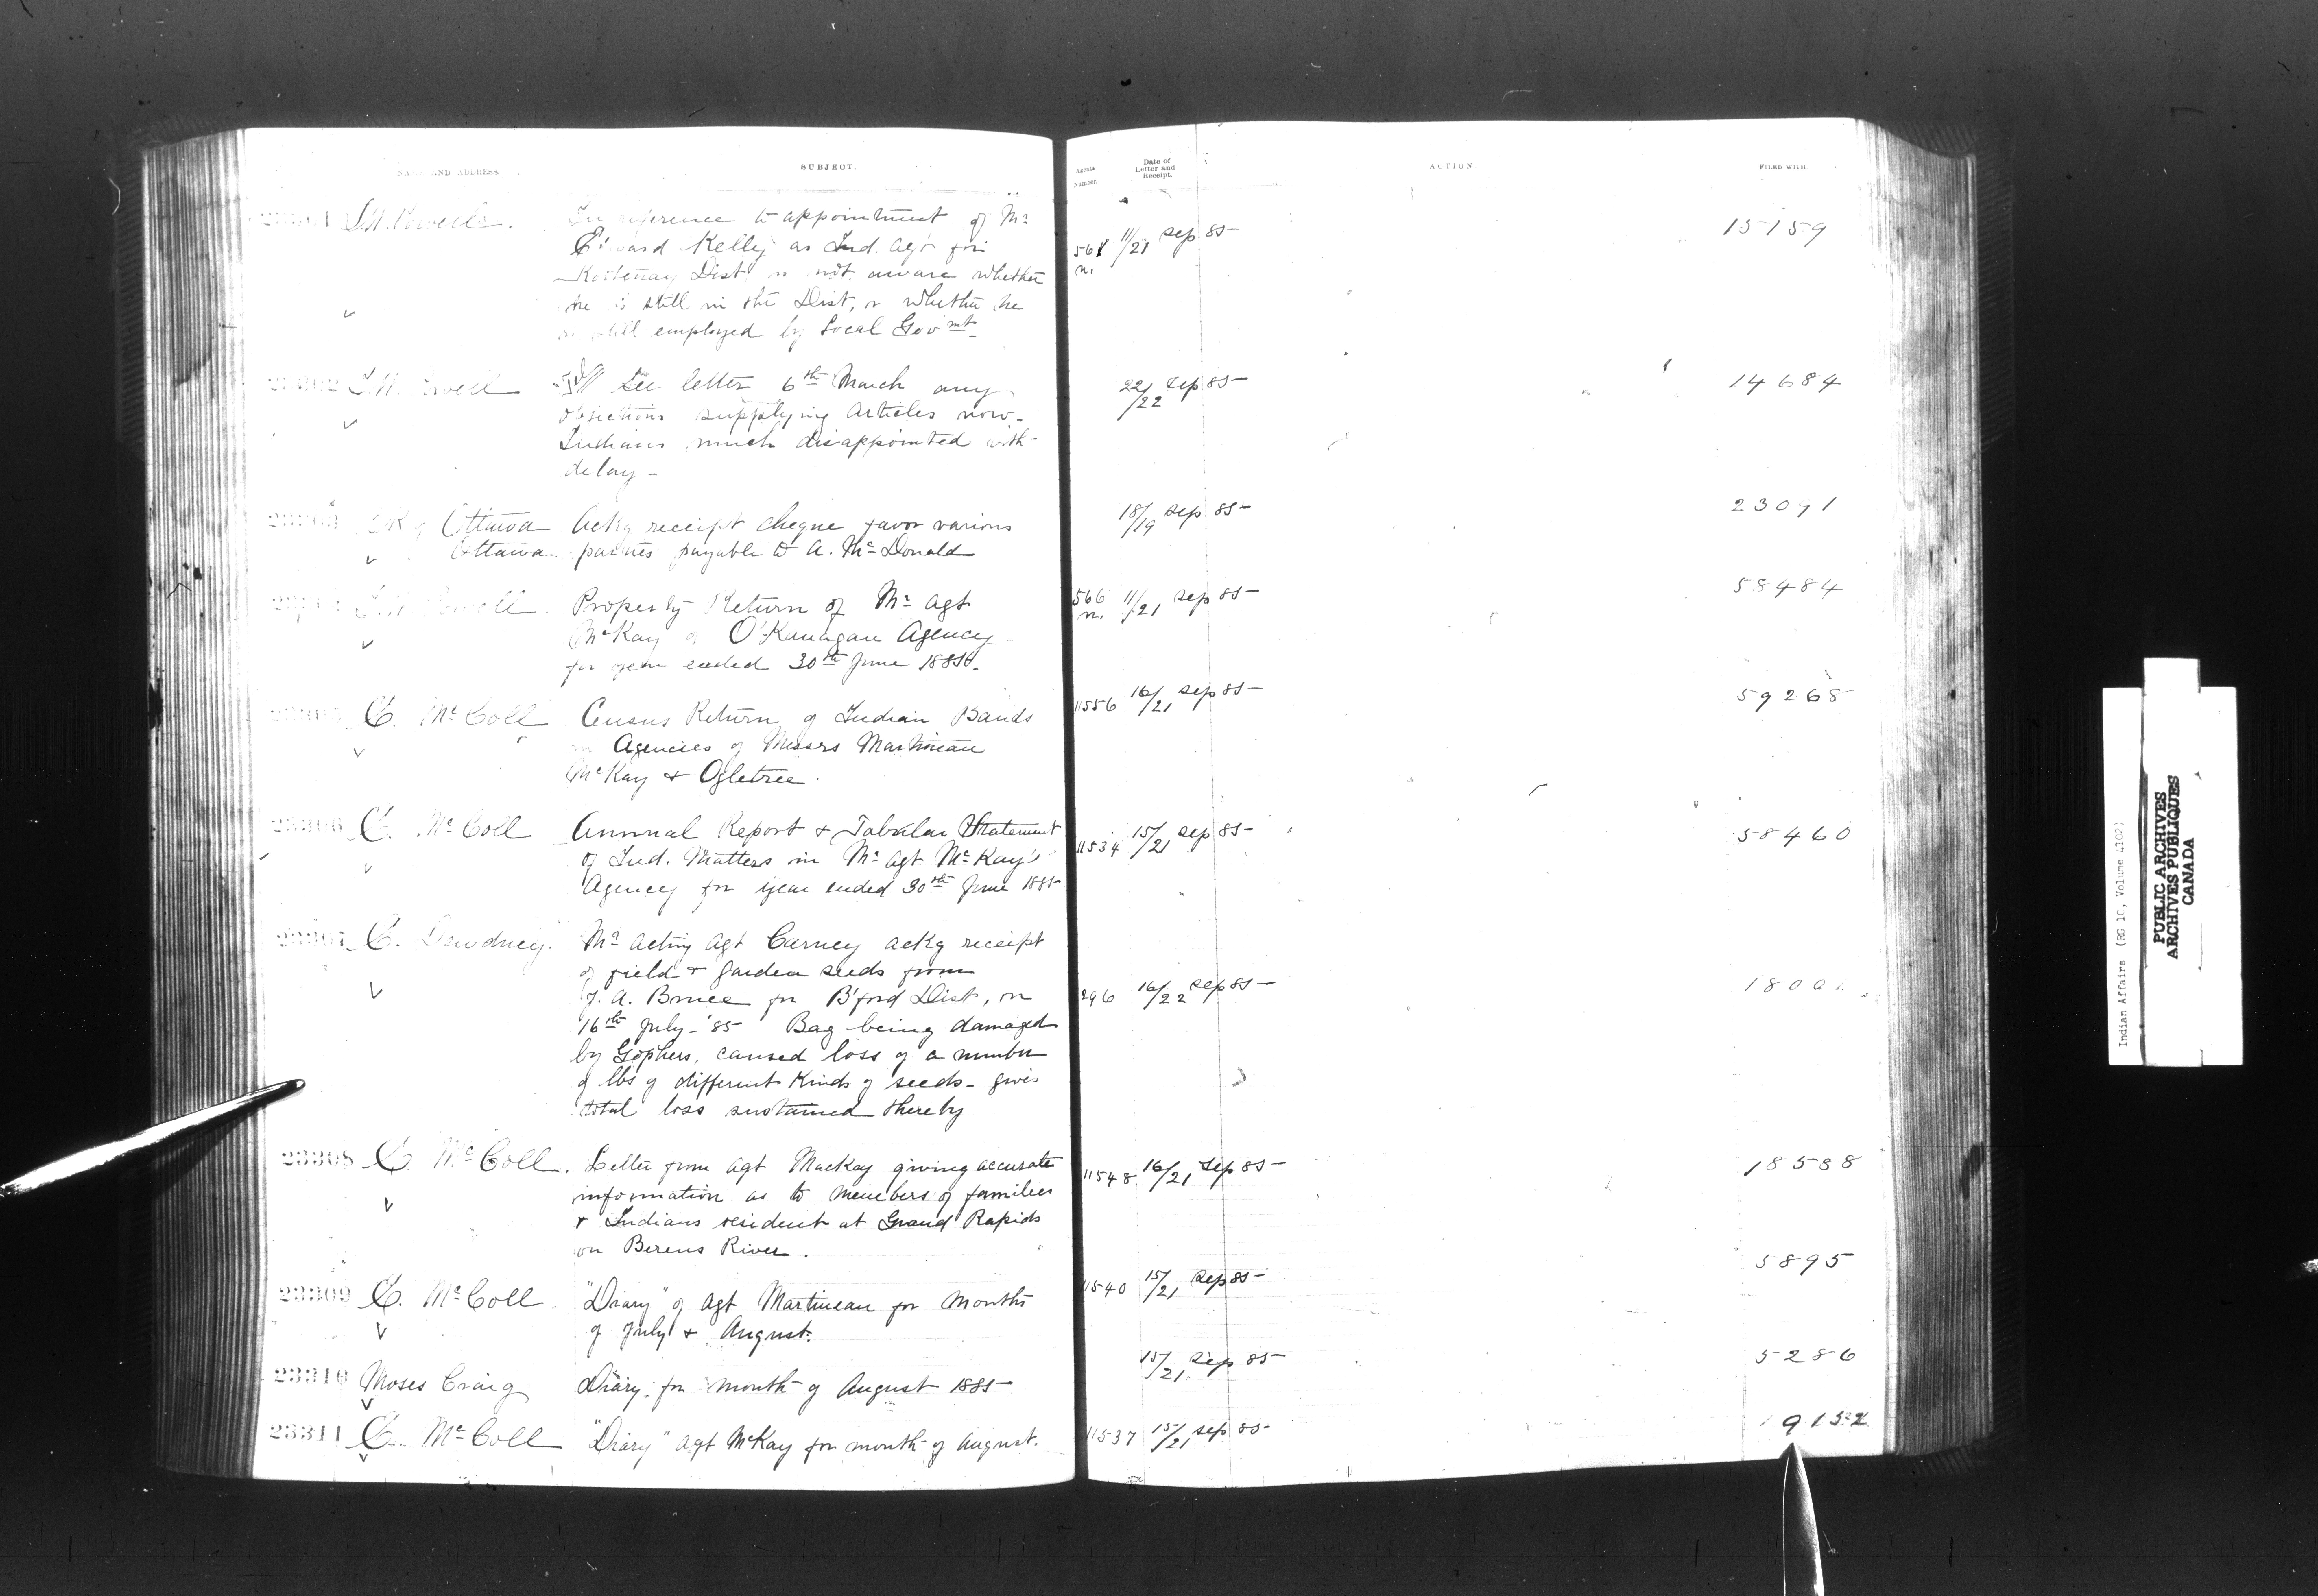 NAME AND ADDRESS.
SUBJECT.
Agents Number.
Date of Letter and Receipt.
ACTION.
FILED WITH.
I.W. Powell.
In reference to appointment of Mr
Edward Kelly as Ind. Agt for
Kootenay Dist, is not aware whether
he is still in the Dist, or whether he
is still employed by Local Govmt.
11/21 Sep 85
15159
I.W. Powell
See letter 6th March any
objections supplying articles now.
Indians much disappointed with
delay
22/22 Sep 85
14684
Ottawa
Ottawa.
Ackg receipt cheque favor various
parties payable to A. McDonald
18/19 Sep. 85
23091
I.W. Powell
Property Return of Mr Agt
McKay of O'Kanagan Agency
for year ended 30th June 1885.
566 n. 11/21 Sep 85
58484
E. McColl
Census Return of Indian Bands
in Agencies of Messrs Martineau
McKay & Ogletree.
11556 16/21 Sep 85
59268
23306 E. McColl
Annual Report & Tabular Statement
of Ind. Matters in Mr Agt McKay's
Agency for year ended 30th June 1885
11534 15/21 Sep 85
58460
23307 E. Dewdney.
Mr Acting Agt Carney ackg receipt
of field & garden seeds from
J. A. Bruce for B'ford Dist, on
16th July '85 Bag being damaged
by Gophers, caused loss of a number
of lbs of different kinds of seeds - gives
total loss sustained thereby
296 16/22 Sep 85
23308 E. McColl.
Letter from Agt MacKay giving accurate
information as to members of families
& Indians resident at Grand Rapids
on Berens River.
11548 16/21 Sep 85
18588
23309 E. McColl
"Diary" of Agt Martineau for months
of July & August.
11540 15/21 Sep 85
5895
23310 Moses Craig
Diary for month of August 1885
15/21 Sep 85
5286
23311 E. McColl
"Diary" Agt McKay for month of August.
11537 15/21 Sep 85
Indian Affairs (RG 10, Volume 4102)
PUBLIC ARCHIVES
ARCHIVES PUBLIQUES
CANADA